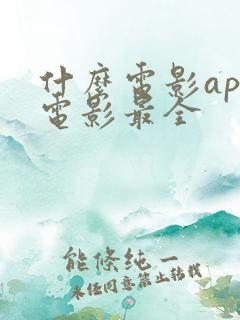 什麼電影ap
電影最全
能條純一
未經同意禁止轉載